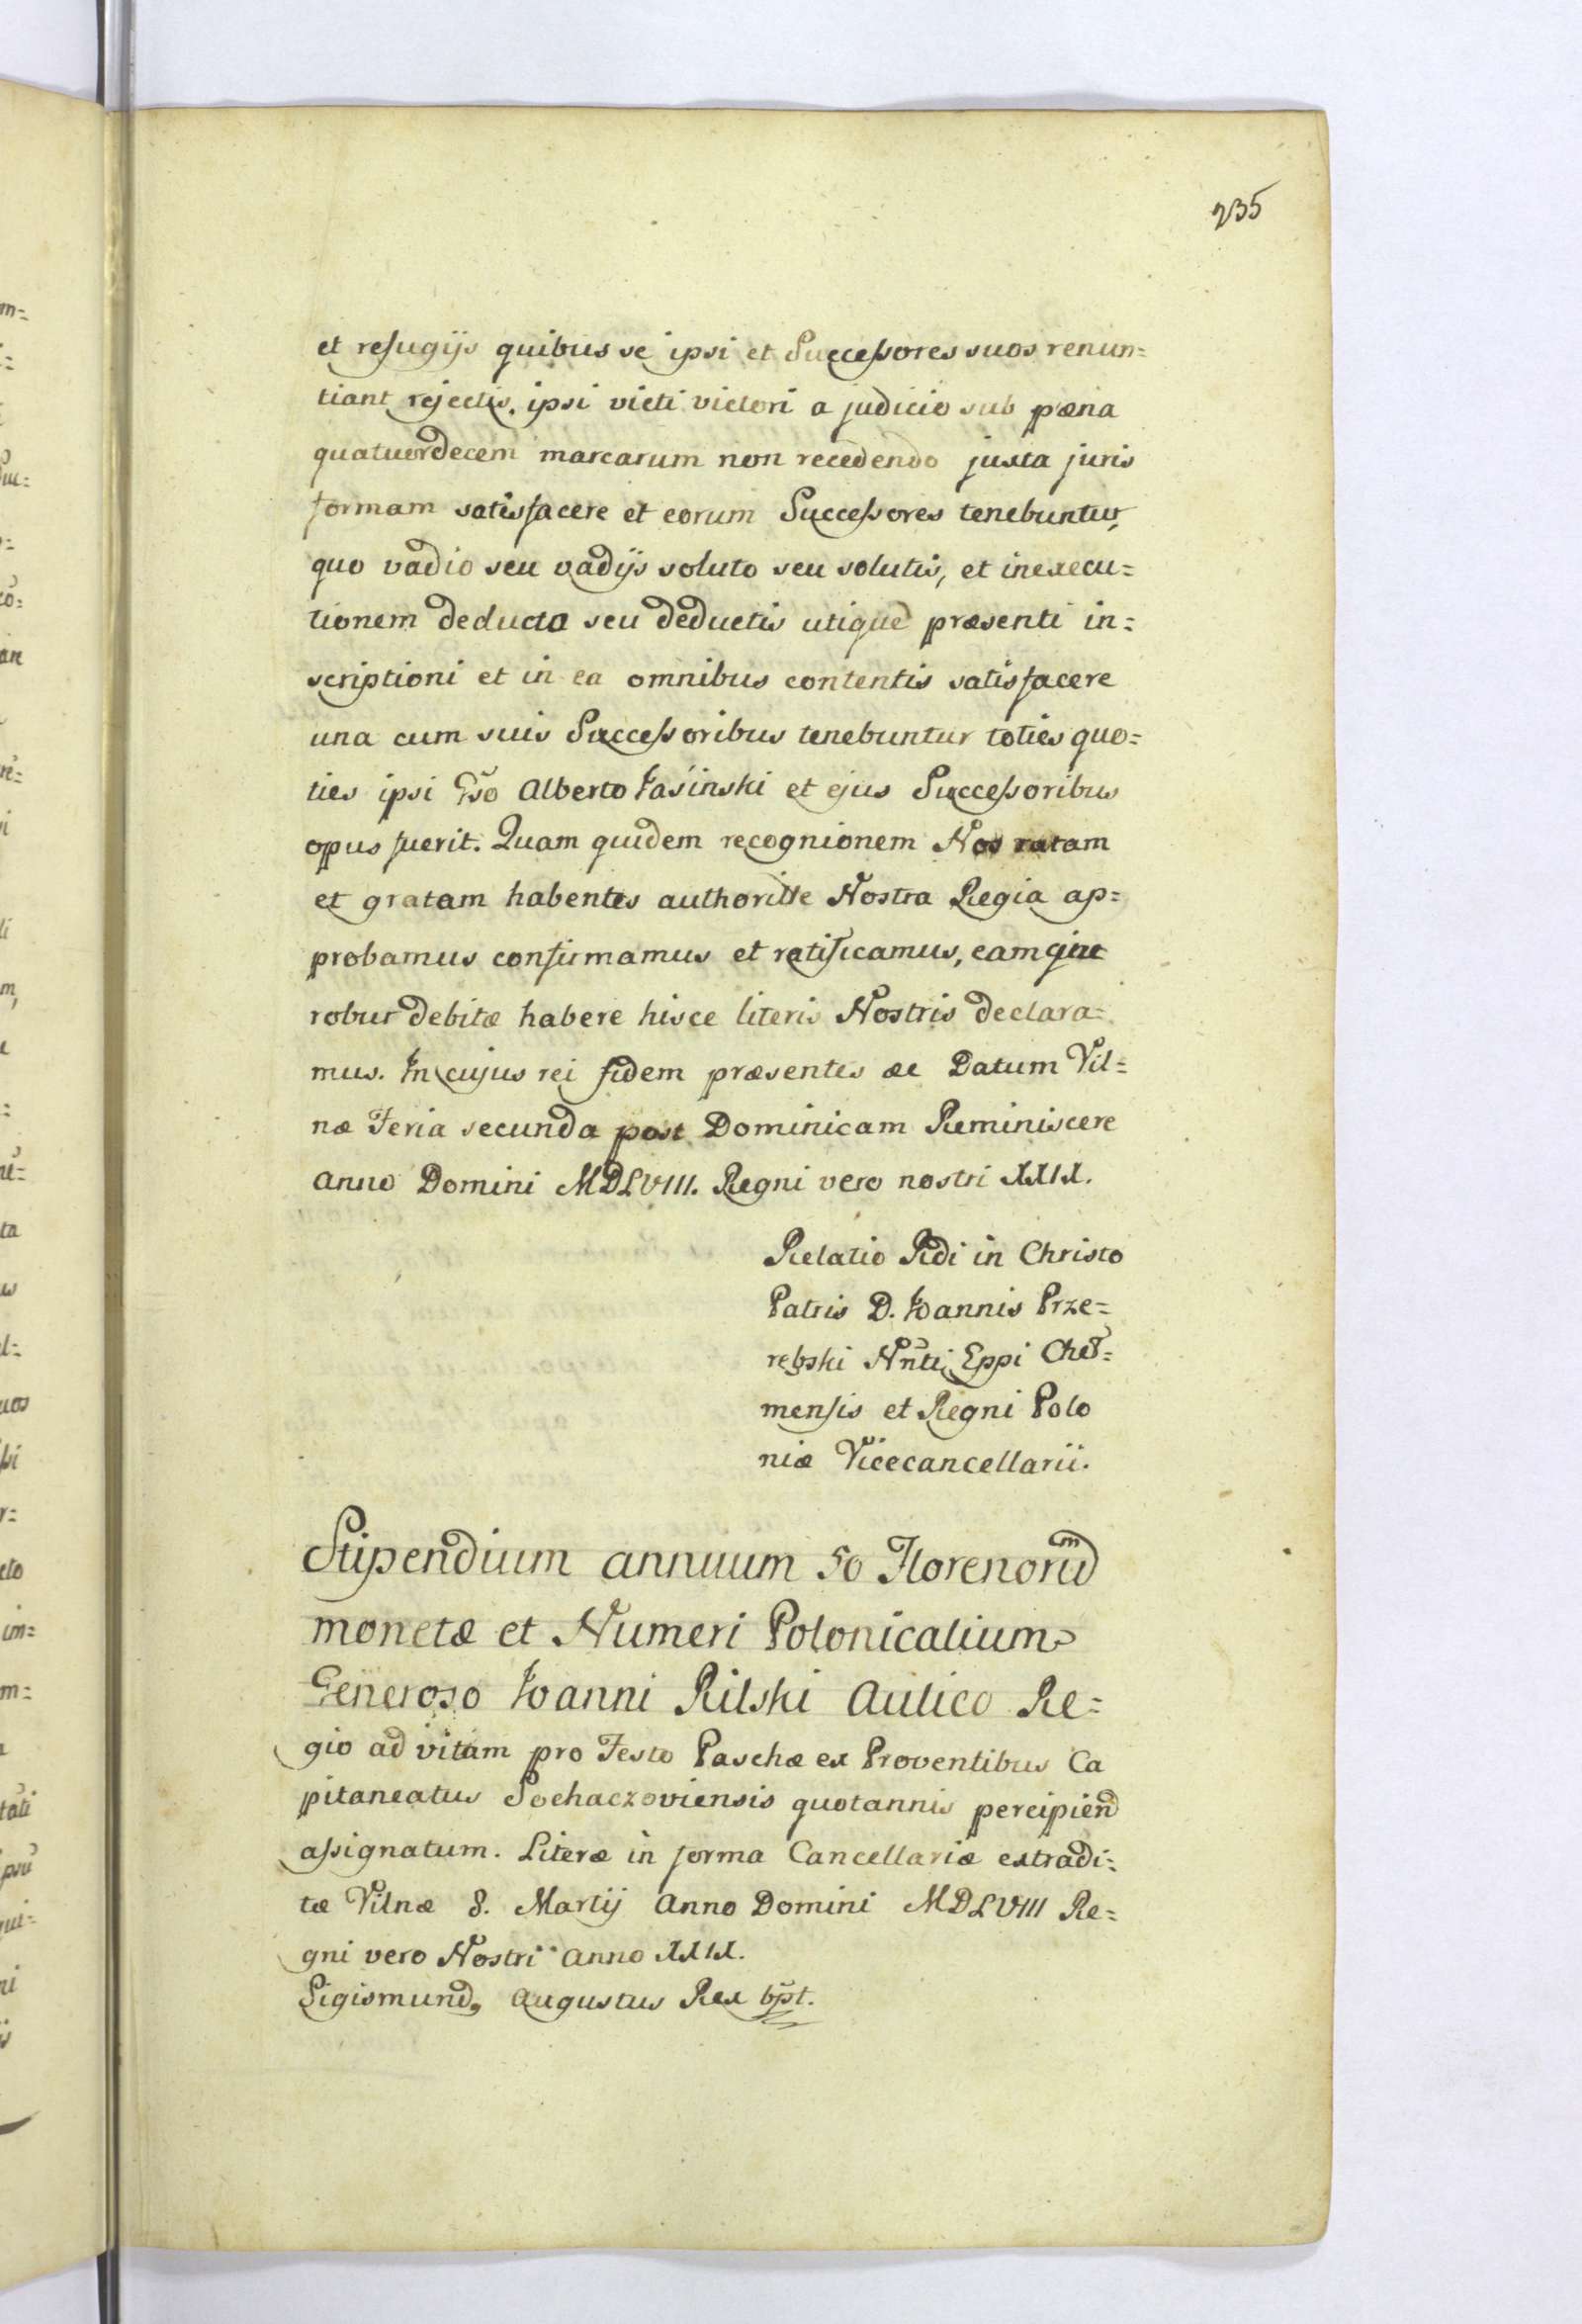 235
et refugijs quibus se ipsi et Successores suos renun=
tiant rejectis, ipsi victi victori a judicio sub pæna
quatuordecem marcarum non recedendo juxta juris
formam satisfacere et eorum Successores tenebuntur,
quo vadio seu vadijs soluto seu solutis, et inexecu=
tionem deducto seu deductis utique præsenti in=
scriptioni et in ea omnibus contentis satisfacere
una cum suis Successoribus tenebuntur toties quo=
ties ipsi Gso Alberto Jasinski et ejus Successoribus
opus fuerit. Quam quidem recognionem Nos ratam
et gratam habentes authoritte Nostra Regia ap=
probamus confirmamus et ratificamus, eamque
robur debitæ habere hisce literis Nostris declara=
mus. In cujus rei fidem præsentes ae Datum Vil=
næ Feria secunda post Dominicam Reminiscere
Anno Domini MDLVIII. Regni vero nostri XXIX.
Relatio Rdi in Christo
Patris D. Joannis Prze=
rebski Nnti Eppi Chel=
mensis et Regni Polo
niæ Vicecancellarii.
Stipendium annuum 50 Florenorum
monetæ et Numeri Polonicalium
Generoso Joanni Rilski Aulico Re=
gio ad vitam pro Festo Paschæ ex Proventibus Ca
pitaneatus Sochaczoviensis quotannis percipiend
assignatum. Literæ in forma Cancellariæ extradi=
tæ Vilnæ 8. Martij Anno Domini MDLVIII Re=
gni vero Nostri Anno XXIX.
Sigismund, Augustus Rex spt.